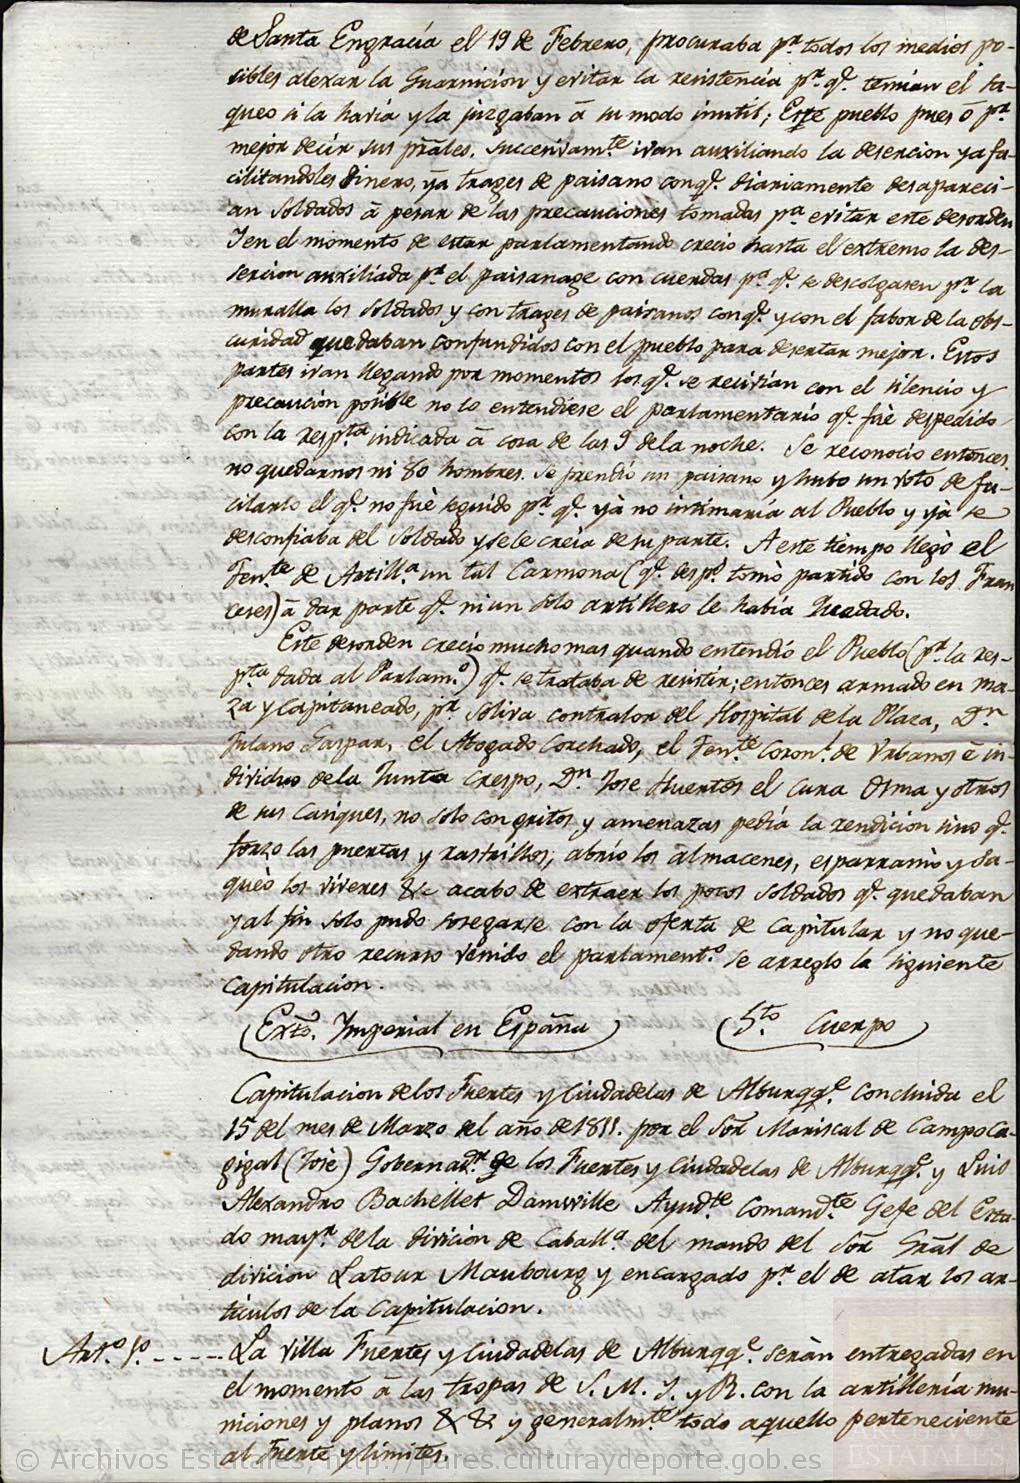 de Santa Engracia el 19 de Febrero, procuraba pr. todos los medios po-
sibles alexar la Guarnicion y evitar la resistencia pr. qe. temian el sa-
queo si la havia y la juzgaban á su modo inutil; Este pueblo pues ó pa.
mejor decir sus prales. succesivamte. ivan auxiliando la desercion ya fa-
cilitandoles dinero, ya trages de paisano conqe. diariamente desapareci-
an soldados á pesar de las precauciones tomadas pa. evitar este desorden
Y en el momento de estar parlamentando crecio hasta el extremo la des-
sercion auxiliada pr. el paisanage con cuerdas pa. qe. se descolgasen pr. la
muralla los soldados y con trages de paisanos conqe. y con el fabor de la obs-
curidad quedaban confundidos con el pueblo para desertar mejor. Estos
partes ivan llegando por momentos los qe. se recivian con el silencio y
precaucion posible no lo entendiese el parlamentario qe. fué despedido
con la respta. indicada á cosa de las 9 de la noche. Se reconocio entonces
no quedarnos ni 80 hombres. Se prendió un paisano y hubo un voto de fu-
cilarlo el qe. no fué seguido pr. qe. yá no intimaria al Pueblo y yá se
desconfiaba del soldado y se le creia de su parte. A este tiempo llegó el
Tente. de Artilla. un tal Carmona (qe. desps. tomó partido con los Fran
ceses) á dar parte qe. ni un solo artillero le habia quedado.
Este desorden crecio mucho mas quando entendió el Pueblo (pr. la res-
pta. dada al Parlamo.) qe. se trataba de resistir; entonces armado en ma-
za y Capitaneado, pr. Soliva contralor del Hospital de la Plaza, Dn.
Fulano Gaspar, el Abogado Corchado, el Tente. Coronl. de Urbanos é in-
dividuo de la Junta Crespo, Dn. Jose Huertos el Cura Osma y otros
de sus Caciques, no solo con gritos y amenazas pedia la rendicion sino qe.
forzo las puertas y rastrillos, abrio los almacenes, esparramó y sa-
queó los víveres &c acabo de extraer los pocos soldados qe. quedaban
y al fin solo pudo sosegarse con la oferta de Capitular y no que-
dando otro recurso venido el parlamento. se arreglo la siguiente
Capitulacion.
Exto. Imperial en España 5to. Cuerpo
Capitulacion de los Fuertes y Ciudadelas de Alburqqe. concluida el
15 del mes de Marzo del año de 1811. por el Sor. Mariscal de Campo Ca-
gigal (José) Gobernadr. de los Fuertes y Ciudadelas de Alburqqe. y Luis
Alexandro Bachellet Damville Ayudte. Comandte. Gefe del Esta-
do mayr. de la division de Caballa. del mando del Sor. Gral de
division Latour Maubourg y encargado pr. el de atar los ar-
ticulos de la Capitulacion.
Arto. 1o. ---- La villa Fuertes y Ciudadelas de Alburqqe. serán entregadas en
el momento á las tropas de S. M. I. y R. con la artilleria mu-
niciones y planos && y generalmte. todo aquello perteneciente
al Fuerte y limites.
© Archivos Estatales, http://pares.culturaydeporte.gob.es
ARCHIVOS
ESTATALES